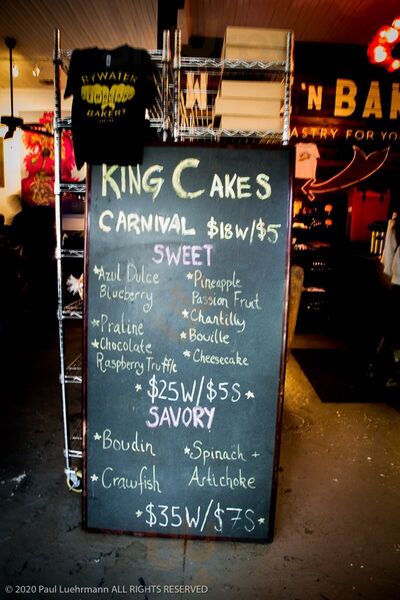 BYWATER
BAKERY
W
'N BAK
ASTRY FOR YO
KING CAKES
CARNIVAL $18W/$5
SWEET
*Azul Dulce
Blueberry
*Praline
*Chocolate
Raspberry Truffle
*Pineapple
Passion Fruit
*Chantilly
*Bouille
*Cheesecake
*$25W/$5S*
SAVORY
*Boudin
*Crawfish
*Spinach +
Artichoke
*$35W/$7S*
© 2020 Paul Luehrmann ALL RIGHTS RESERVED